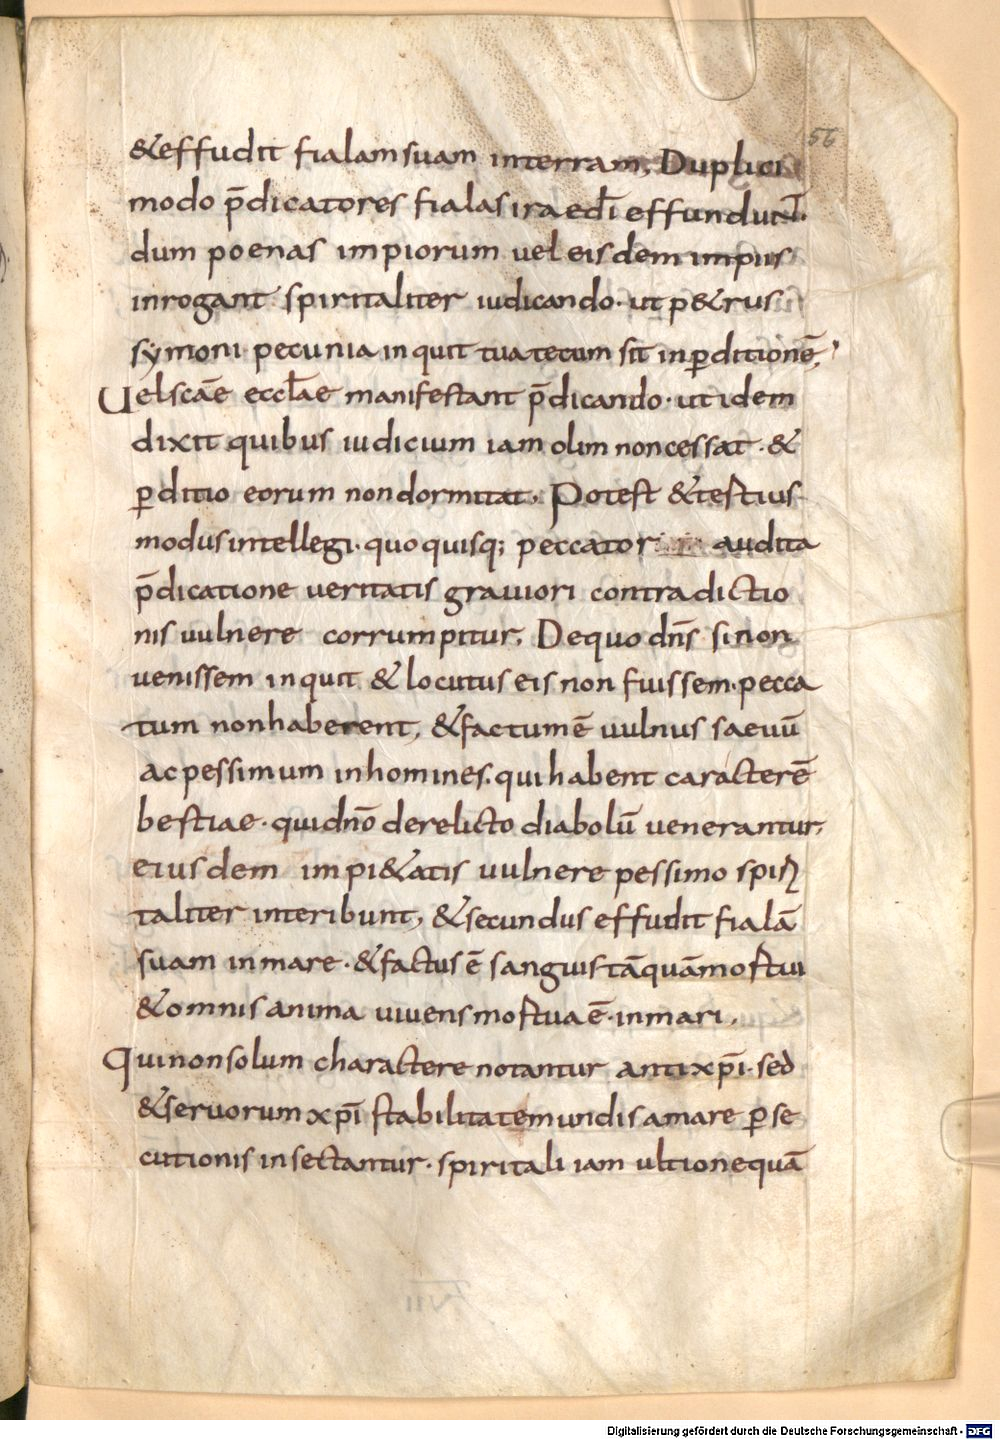 56
& effudit fialam suam in terram, Duplici
modo p̄dicatores fialas irae dī effundunt.
dum poenas impiorum vel eisdem impiis
inrogant spiritaliter iudicando· ut p&rus
symoni· pecunia inquit tua tecum sit in p̱ditionē,
Vel scāe eccl̄ae manifestant p̄dicando· ut idem
dixit quibus iudicium iam olim non cessat· &
p̱ditio eorum non dormitat, Potest & testius
modus intellegi· quo quisq; peccator audita
p̄dicatione veritatis graviori contradictio
nis vulnere corrumpitur, De quo dn̄s si non
venissem inquit & locutus eis non fuissem· pecca
tum non haberent, & factum ē vulnus saevū
ac pessimum in homines· qui habent caracterē
bestiae· qui dn̄o derelicto diabolū venerantur,
eiusdem impi&atis vulnere pessimo spiri
taliter interibunt, & secundus effudit fialā
suam in mare· & factus ē sanguis tāquā mostui
& omnis anima vivens mostua ē· in mari,
Qui non solum charactere notantur antixp̄i· sed
& servorum xp̄i stabilitatem undis amare p̱se
cutionis insectantur· spiritali iam ultione quā
Digitalisierung gefördert durch die Deutsche Forschungsgemeinschaft - DFG